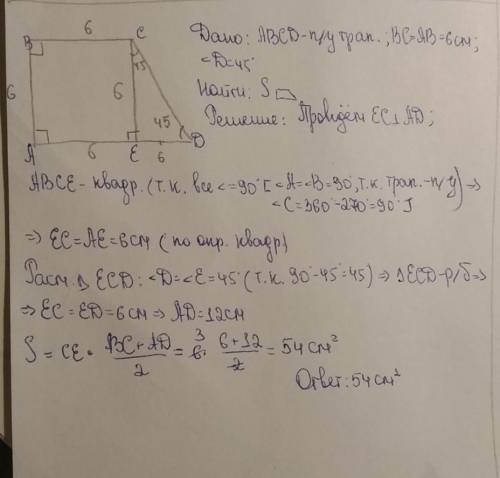 6
B
C
45
6
6
45
A
6
E
6
D
Дано: ABCD-п/у трап.; BC=AB=6см;
<D=45°
Найти: S
Решение: Проведём EC⊥AD;
ABCE- квадр. (т.к. все <=90° [<A=<B=90°, т.к. трап.-п/у) ⇒
<C=360°-270°=90°]
⇒ EC=AE=6см (по опр. квадр)
Расм. Δ ECD: <D=<E=45° (т.к. 90°-45°=45) ⇒ Δ ECD-р/б ⇒
⇒ EC=ED=6см ⇒ AD=12см
S = CE · BC+AD/2 = 6 3 · 6+12/2 = 54 см²
Ответ: 54 см²